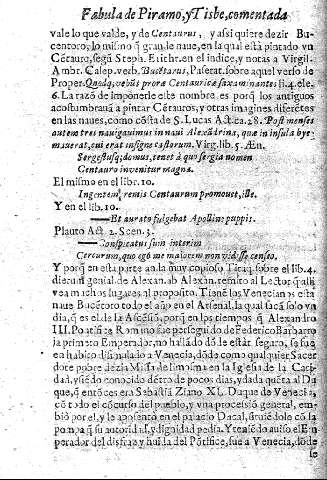 Fabula de Piramo, y Tisbe, comentada
vale lo que valde, y de Centaurus, y assi quiere dezir Bu-
centoro, lo mismo q̃ grande naue, en la qual està pintado vn
Cẽtauro, segũ Steph. Erithr. en el indice, y notas a Virgil.
Ambr. Calep. verb. Bucẽtarus, Paserat. sobre aquel verso de
Proper. Quodq; vebũt prora Centaurica saxa minantes: li. 4. ele.
6. La razõ de imponerle este nombre, es porq̃ los antiguos
acostumbrauã a pintar Cẽtauros, y otras imagines diferẽtes
en las naues, como cõsta de S. Lucas Act. ca. 28. Post menses
autem tres nauigauimus in naui Alexãdrina, que in insula bye-
mauerat, cui erat insigne castorum. Virg. lib. 5. Æn.
Sergestusq; domus, tenet à quo sergia nomen
Centauro inuenitur magna.
El mismo en el libr. 10.
Ingentem remis Centaurum promouet, ille.
Y en el lib. 10.
Et aurato fulgebat Apolline puppis.
Plauto Act. 2. Scen. 3.
Conspicatus sum interim
Cercurum, quo ego me maiorem non vidisse censeo.
Y porq̃ en esta parte anda muy copioso Tiraq. sobre el lib. 4.
dierum genial. de Alexan. ab Alexan. remito al Lector q̃ alli
vea muchos lugares al proposito. Tienẽ los Venecianos esta
naue Bucẽtoro todo el año en el Arsenal, la qual sacã solo vn
dia, q̃ es el de la Ascẽsiõ, porq̃ en los tiempos q̃ Alexandro
III. Põtifice Romano fue perseguido de Federico Barbarro
ja primero Emperador, no hallãdo dõde estar seguro, se fue
en habito disimulado a Venecia, dõde como qualquier Sacer
dote pobre dezia Missa de limosna en la Iglesia de la Cari-
dad, y siẽdo conocido dẽtro de pocos dias, y dada cuẽta al Du
que, q̃ entõces era Sebastiã Ziano XL. Duque de Venecia,
cõ todo el cõcurso del pueblo, y vna processiõ general, em-
biò por el, y le aposentò en el palacio Ducal, siruiẽdole cõ la
pompa q̃ su autoridad, y dignidad pedia. Y teniẽdo auiso el Em
perador del disfraz y huida del Põtifice, fue a Venecia, dõde
le